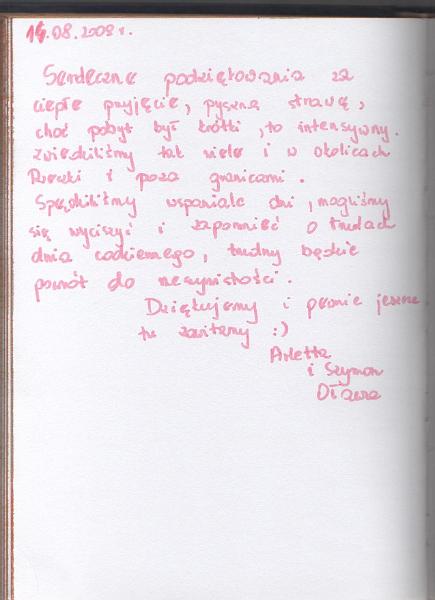 14.08.2008 r.
Serdeczne podziękowania za
ciepłe przyjęcie, pyszną strawę,
choć pobyt był krótki, to intensywny.
Zwiedziliśmy tak wiele i w okolicach
Rzeczki i poza granicami.
Spędziliśmy wspaniałe dni, mogliśmy
się wyciszyć i zapomnieć o trudach
dnia codziennego, trudny będzie
powrót do rzeczywistości.
Dziękujemy i pewnie jeszcze
tu zawitamy :)
Arletta
i Szymon
Oława